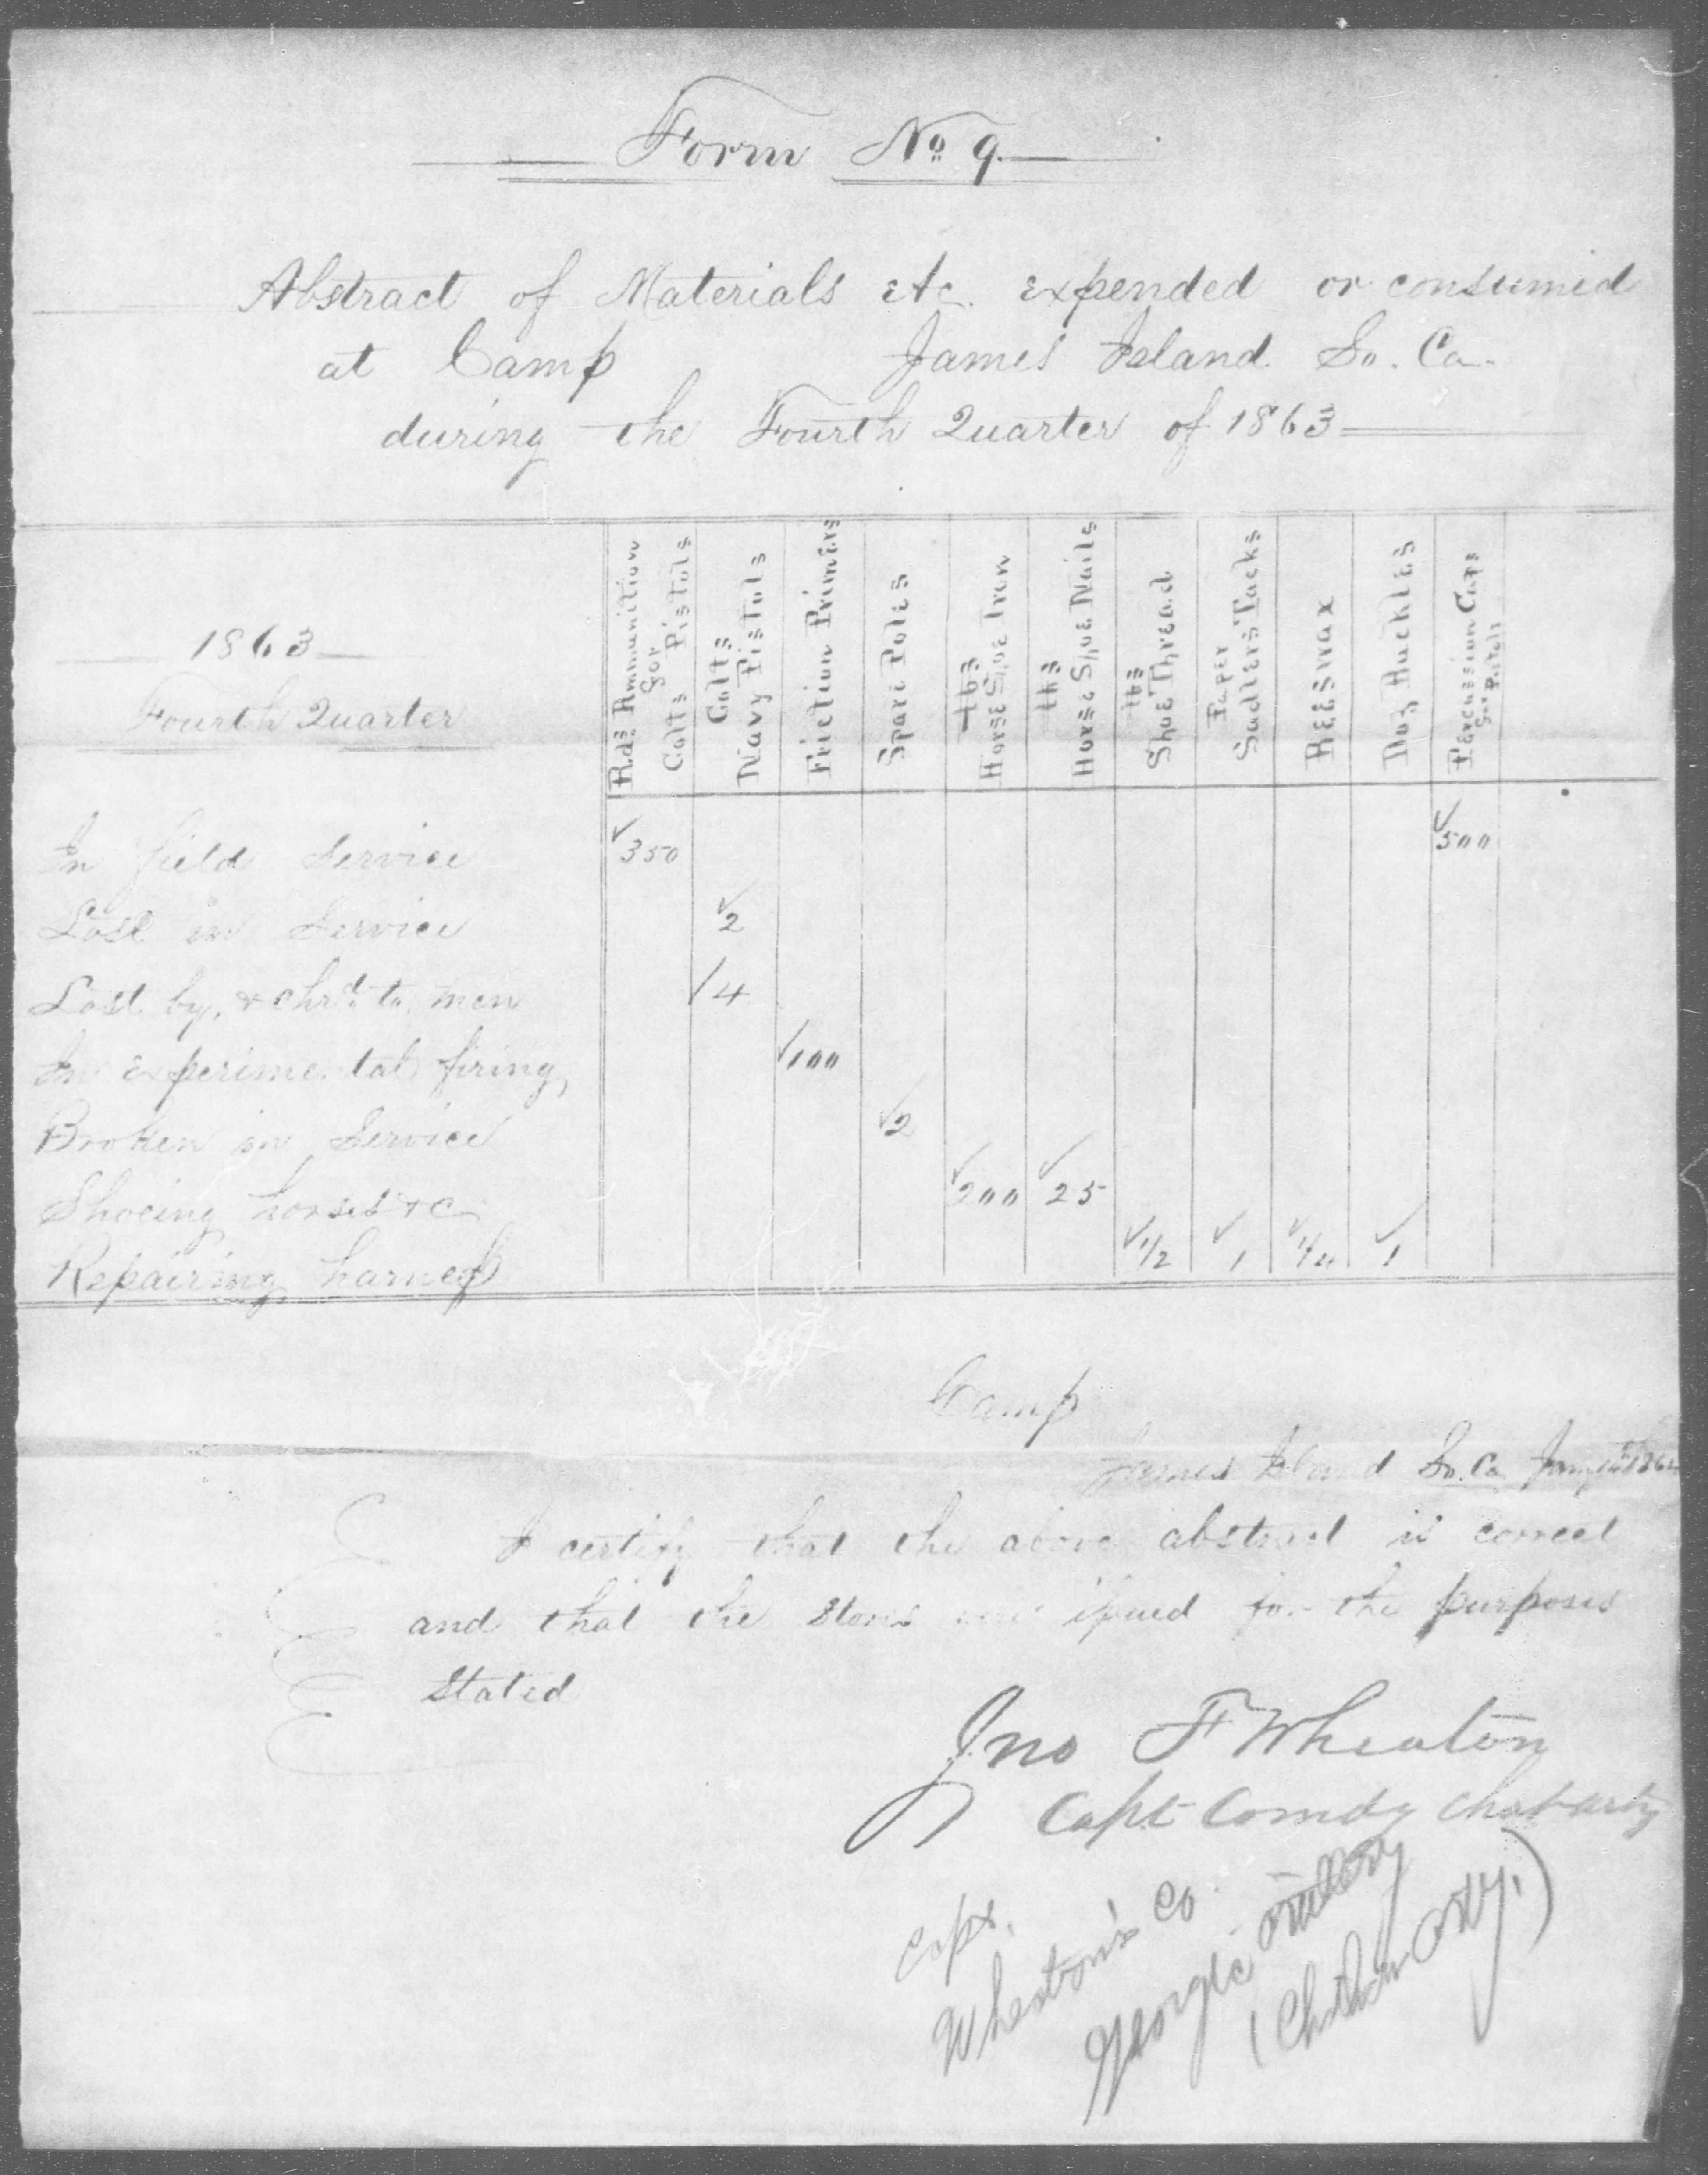 Form No 9.
Abstract of Materials etc. expended or consumed
at Camp James Island So. Ca.
during the Fourth Quarter of 1863
1863
Fourth Quarter
Rds Ammunition for Colts Pistols
Colts Navy Pistols
Friction Primers
Spare Poles
lbs Horse Shoe Iron
lbs Horse Shoe Nails
lbs Shoe Thread
Paper Sadlers Tacks
Beeswax
Doz Buckles
Percussion Caps for Pistols
In field Service 350 500
Lost in Service 2
Lost by, & chrd to, men 4
In experimental firing, 100
Broken in Service 2
Shoeing horses &c 200 25
Repairing harness 1/2 1 1/4 1
Camp
James Island So. Ca Jany 1864
I certify that the above abstract is correct
and that the stores were issued for the purposes
stated
Jno F Wheaton
Capt Comdg Chat Arty
Capt.
Wheaton's Co
Georgia Artillery
(Chatham Arty.)